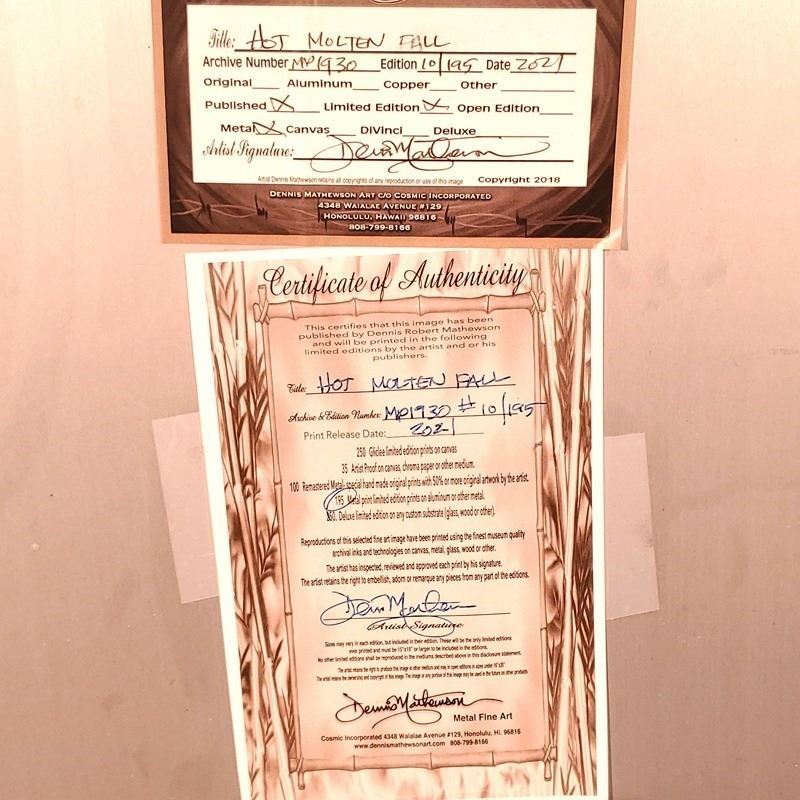 Title: HOT MOLTEN FALL
Archive Number MP1930 Edition 10/195 Date 2021
Original___ Aluminum___ Copper___ Other
Published X Limited Edition X Open Edition___
Metal X Canvas___ DiVinci___ Deluxe
Artist Signature: Dennis Mathewson
Artist Dennis Mathewson retains all copyrights of any reproduction or use of this image Copyright 2018
DENNIS MATHEWSON ART C/O COSMIC INCORPORATED
4348 WAIALAE AVENUE #129
HONOLULU, HAWAII 96816
808-799-8166
Certificate of Authenticity
This certifies that this image has been
published by Dennis Robert Mathewson
and will be printed in the following
limited editions by the artist and or his
publishers.
Title: HOT MOLTEN FALL
Archive & Edition Number: MP1930 # 10/195
Print Release Date: 2021
250 Gliclee limited edition prints on canvas
35 Artist Proof on canvas, chroma paper or other medium.
100 Remastered Metal- special hand made original prints with 50% or more original artwork by the artist.
195 Metal print limited edition prints on aluminum or other metal.
Deluxe limited edition on any custom substrate (glass, wood or other).
Reproductions of this selected fine art image have been printed using the finest museum quality
archival inks and technologies on canvas, metal, glass, wood or other.
The artist has inspected, reviewed and approved each print by his signature.
The artist retains the right to embellish, adorn or remarque any pieces from any part of the editions.
Dennis Mathewson
Artist Signature
Sizes may vary in each edition, but included in their edition. These will be the only limited editions
ever printed and must be 15"x18" or larger to be included in the editions.
No other limited editions shall be reproduced in the mediums described above in this disclosure statement.
The artist retains the right to produce this image in other medium and may in open editions in sizes under 16"x20"
The artist retains the ownership and copyright of this image. The image or any portion of this image may be used in the future on other products
Dennis Mathewson
Metal Fine Art
Cosmic Incorporated 4348 Waialae Avenue #129, Honolulu, Hi. 96816
www.dennismathewsonart.com 808-799-8166